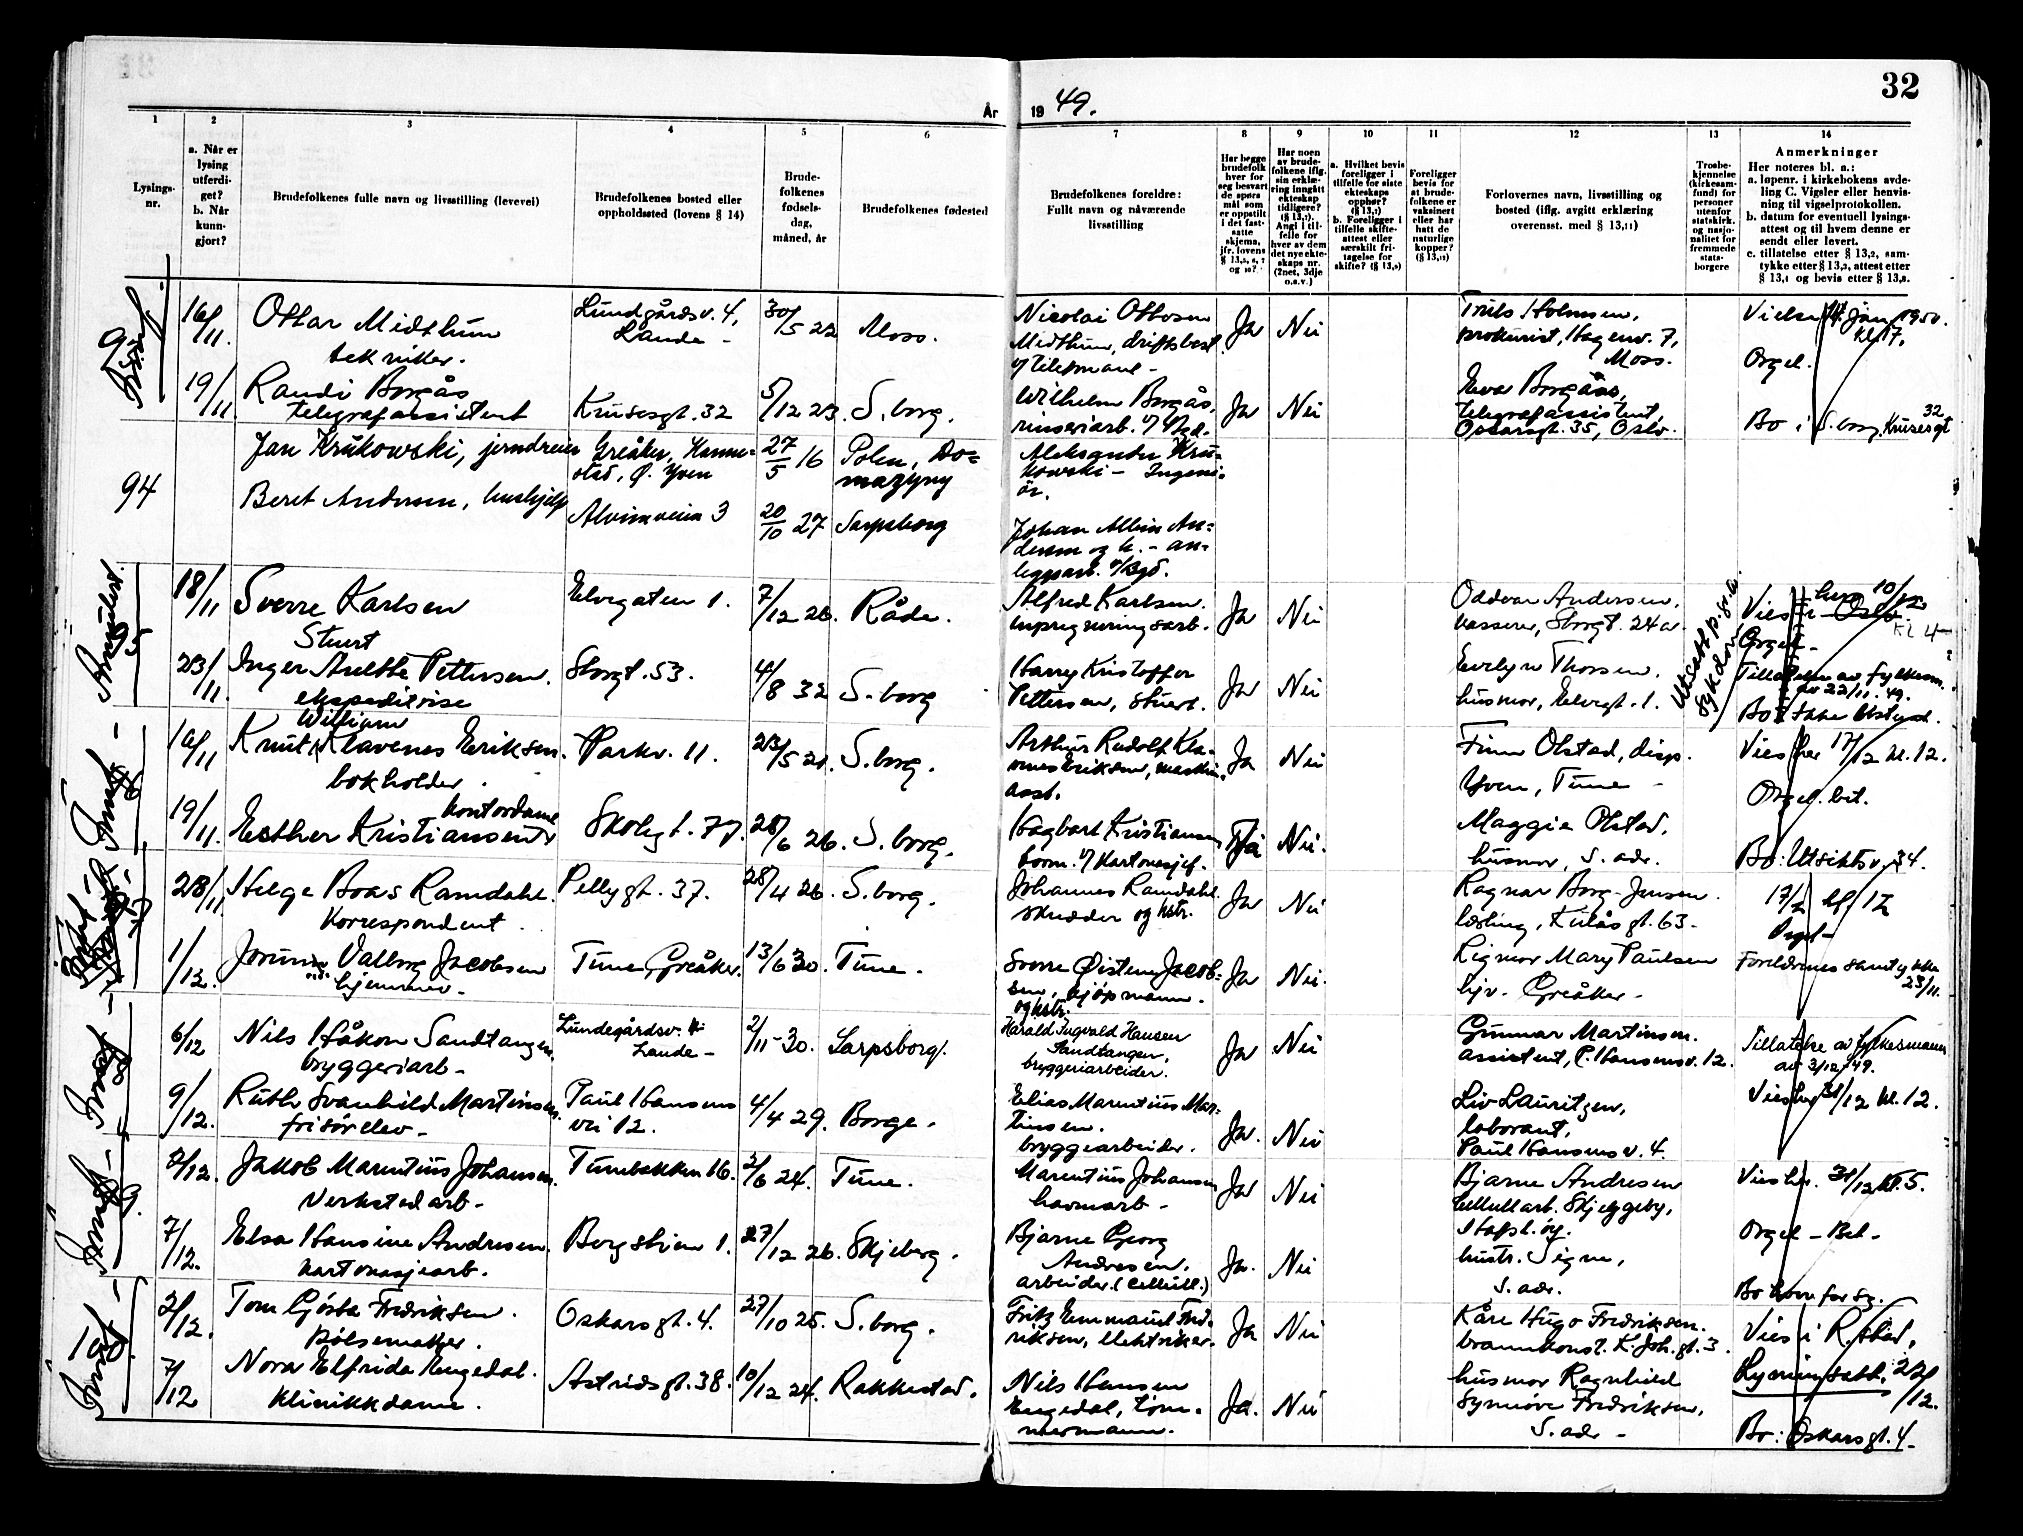 32
År 19 49.
1 2 3 4 5 6 7 8 9 10 11 12 13 14
Lysings-
nr.
a. Når er
lysing
utferdi-
get?
b. Når
kunn-
gjort?
Brudefolkenes fulle navn og livsstilling (levevei)
Brudefolkenes bosted eller
oppholdssted (lovens § 14)
Brude-
folkenes
fødsels-
dag,
måned, år
Brudefolkenes fødested
Brudefolkenes foreldre:
Fullt navn og nåværende
livsstilling
Har begge
brudefolk
hver for
seg besvart
de spørs-
mål som
er oppstilt
i det fast-
satte
skjema,
jfr. lovens
Har noen
av brude-
folkene iflg.
sin erklæ-
ring inngått
ekteskap
tidligere?
(§ 13,1).
Angi i til-
felle for
hver av dem
det nye ekte-
skaps nr.
(2net, 3dje
o.s.v.)
a. Hvilket bevis
foreligger i
tilfelle for siste
ekteskaps
opphør?
b. Foreligger i
tilfelle skifte-
attest eller
særskilt fri-
tagelse for
skifte?
Foreligger
bevis for
at brude-
folkene er
vaksinert
eller har
hatt de
naturlige
kopper?
Forlovernes navn, livsstilling og
bosted (iflg. avgitt erklæring
overensst. med § 13,11)
Trosbe-
kjennelse
(kirkesam-
fund) for
personer
utenfor
statskirk.
og nasjo-
nalitet for
fremmede
stats-
borgere
Anmerkninger
Her noteres bl. a.:
a. løpenr. i kirkebokens avde-
ling C. Vigsler eller henvis-
ning til vigselprotokollen.
b. datum for eventuell lysings-
attest og til hvem denne er
sendt eller levert.
c. tillatelse etter § 13,2, sam-
tykke etter § 13,3, attest etter
§ 13,4 og bevis etter § 13,8.
16/11 Ottar Midthun
tekniker.
Lundgårdsv. 4,
Lande -
30/5 22 Moss.
Nicolai Ottosen
Midthun, driftsbest.
v/telefonanl -
Ja Nei
Truls Holmsen,
prokurist, Hagenv. 7,
Moss.
Vielse 14. jan 1950.
kl 17.
Orgel.
19/11 Randi Borgås
telegrafassistent
Krusesgt. 32
5/12 23 S. borg.
Wilhelm Borgås,
Ja Nei
Eva Borgås,
telegrafassistent,
Oscarsgt. 35, Oslo.
Bo i S. borg, Krusesgt 32
94
Jan Krukowski, jerndreier
Greåker, Hanne-
stad, Ø. Yven
27/5 16 Polen, Do=
mazyny
Aleksander Kru-
kowski - Ingeni-
ør.
Beret Andersen, hushjelp
Alvimveien 3
20/10 27 Sarpsborg
Johan Albin An-
dersen og h. - an-
leggsarb.
18/11 Sverre Karlsen
Stuert
Elvegaten 1.
7/12 26. Råde.
Alfred Karlsen.
impregneringsarb.
Ja Nei
Oddvar Andersen,
kasserer, Storgt. 24a
Utsatt p.gr.a.
sykdom
Vies i Oslo
her 10/12
kl 4
Orgel -
23/11 Inger Anethe Pettersen.
ekspeditrise
Storgt. 53.
4/8 32 S. borg
Harry Kristoffer
Pettersen, Stuert.
Ja Nei
Evelyn Thorsen,
husmor, Elvegt. 1.
Tillatelse av fylkesm.
av 22/11. 49.
16/11 Knut William Klavenes Eriksen.
bokholder.
Parkv. 11.
23/5 20. S. borg.
Arthur Rudolf Kla-
venes Eriksen, maskin-
asst.
Ja Nei
Finn Olstad, disp.
Yven, Tune -
Vies her 17/12 kl. 12.
Orgel. bet.
19/11. Esther Kristiansen
kontordame
Skolegt. 77.
28/6 26. S. borg.
Hagbart Kristiansen
Ja Nei.
Maggie Olstad,
husmor, S. adr.
Bo: Utsiktsv. 34.
28/11 Helge Boas Ramdahl.
Korrespondent.
Pellygt. 37.
28/4 26. S. borg.
Johannes Ramdahl
skredder og hstr.
Ja Nei
Ragnar Borg-Jensen.
lærling, Kulåsgt. 63 -
17/12 kl 12
Orgel -
1/12. Jorunn Valborg Jacobsen
hjemmev. -
Tune, Greåker.
13/6 30. Tune.
Sverre Øistein Jacob-
sen, kjøpmann.
og hstr.
Ja Nei.
Rigmor Mary Paulsen
hjv. Greåker -
Foreldrenes samtykke
23/11.
6/12 Nils Håkon Sandtangen,
bryggeriarb -
Lundegårdsv.
Lande -
2/11 - 30. Sarpsborg.
Harald Ingvald Hansen
Sandtangen,
bryggeriarbeider.
Ja Nei
Gunnar Martinsen.
assistent, P. Hansensv. 12.
Tillatelse av fylkesmann
av 3/12 49.
9/12. Ruth Svanhild Martinsen.
frisørelev -
Paul Hansens
vei 12.
4/4 29. Borge.
Elias Marentius Mar-
tinsen.
bryggearbeider.
Ja. Nei
Liv Lauritzen,
laborant,
Paul Hansens v. 4.
Vies her 31/12 kl. 12.
2/12. Jakob Marentius Johansen.
Verkstedarb -
Tunebakken 16.
2/6 24. Tune.
Marentius Johansen
havnearb -
Ja Nei
Bjarne Andresen
cellull.arb. Skjeggeby,
Hafsl. øy.
Vies her. 31/12 kl. 5.
Orgel - Bet -
7/12. Elsa Hansine Andresen.
kartonasjearb.
Bergstien 1.
27/12 26. Skjeberg.
Bjarne Georg
Andresen,
arbeider (cellull.)
Ja. Nei
hustr. Signe,
S. adr.
2/12. Tom Gösta Fredriksen.
Pølsemaker.
Oskarsgt. 4.
27/10 25. S. borg.
Fritz Emmanuel Fred-
riksen, elektriker.
Ja Nei
Kåre Hugo Fredriksen.
brannkonst. K. Joh. gt. 3.
Vies i R.stad,
Lysningsatt. 22/12.
7/12 Nora Elfrida Engedal.
klinikkdame.
Astridsgt. 38.
10/12 24. Rakkestad.
Nils Hansen
Engedal, tøm-
mermann.
Ja. Nei
husmor Ragnhild
Synnøve Fredriksen,
S. adr -
Bo: Oskarsgt. 4 -